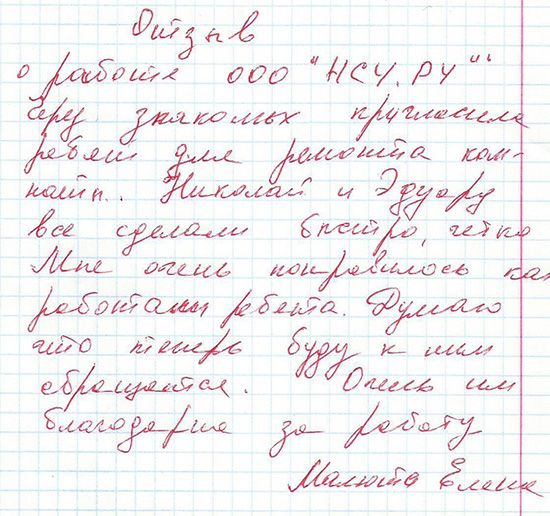 Отзыв
о работе ООО "НСУ.РУ"
Через знакомых пригласила
ребят для ремонта ком-
наты. Николай и Эдуард
все сделали быстро, четко
Мне очень понравилось как
работали ребята. Думаю
что теперь буду к ним
обращатся. Очень им
благодарна за работу
Малюта Елена